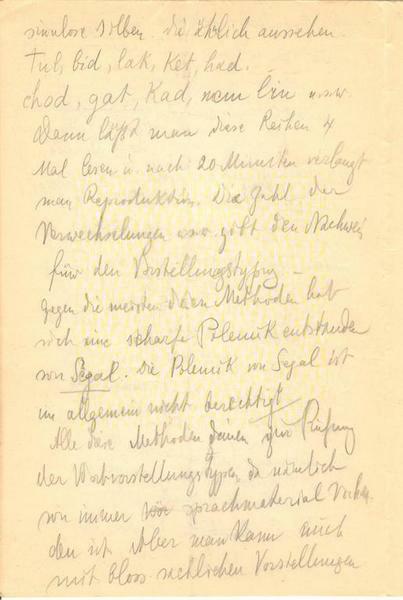 sinnlose Silben die ähnlich aussehen.
Tul, bid, lak, ket, had.
chod, gat, kad, nem lin u.s.w.
Dann läßt man diese Reihen 4
Mal lesen u. nach 20 Minuten verlangt
man Reproduktion. Die Zahl der
Verwechselungen u.s.w. gibt den Nachweis
für den Vorstellungstypus –
Gegen die meisten dieser Methoden hat
sich eine scharfe Polemik entstanden
von Segal. Die Polemik von Segal ist
im allgemein nicht berechtigt
Alle diese Methoden dienen zur Prüfung
der Wortvorstellungstypen, da nämlich
von immer sprachmaterial
den ist. Aber man kann auch
mit bloss sachlichen Vorstellungen